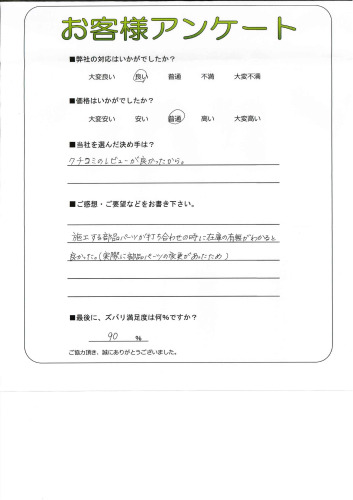 お客様アンケート
■弊社の対応はいかがでしたか?
大変良い 良い 普通 不満 大変不満
■価格はいかがでしたか?
大変安い 安い 普通 高い 大変高い
■当社を選んだ決め手は?
クチコミのレビューが良かったから。
■ご感想・ご要望などをお書き下さい。
施工する部品パーツが打ち合わせの時に在庫の有無がわかると
良かった。(実際に部品パーツの変更があったため)
■最後に、ズバリ満足度は何%ですか?
90 %
ご協力頂き、誠にありがとうございました。